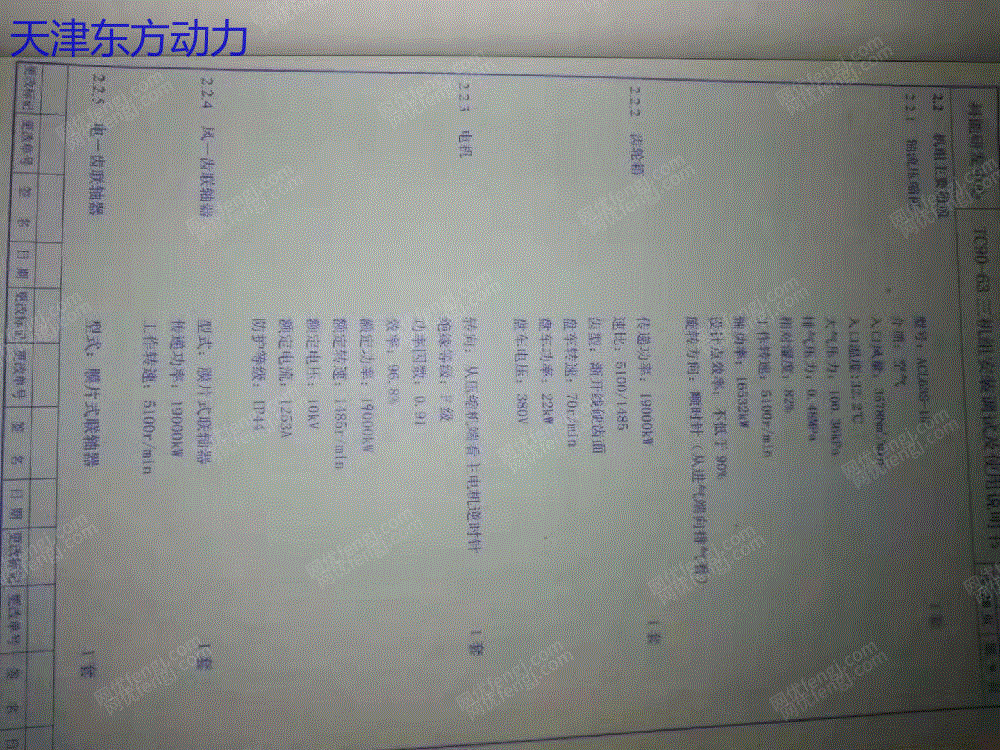 天津东方动力
2.2 机组主要组成
2.2.1 轴流压缩机 1套
介质：空气
大气压力：100.
排气压力：0.48MPa
相对湿度：82%
工作转速：5100r/min
轴功率：16532kW
设计点效率：不低于90%
旋转方向：顺时针（从进气端向排气看）
2.2.2 齿轮箱 1套
传递功率：19000kW
速比：5100/1485
齿型：渐开线硬齿面
盘车转速：70r/min
盘车功率：22kW
盘车电压：380V
2.2.3 电机 1套
转向：从压缩机端看主电机逆时针
绝缘等级：F级
功率因数：0.91
效率：96.8%
额定功率：19000kW
额定转速：1485r/min
额定电压：10kV
额定电流：1253A
防护等级：IP44
2.2.4 风—齿联轴器 1套
型式：膜片式联轴器
传递功率：19000kW
工作转速：5100r/min
2.2.5 电—齿联轴器 1套
型式：膜片式联轴器
更改标记 更改单号 签 名 日期 更改标记 更改单号 签 名 日期 更改标记 更改单号 签 名 日